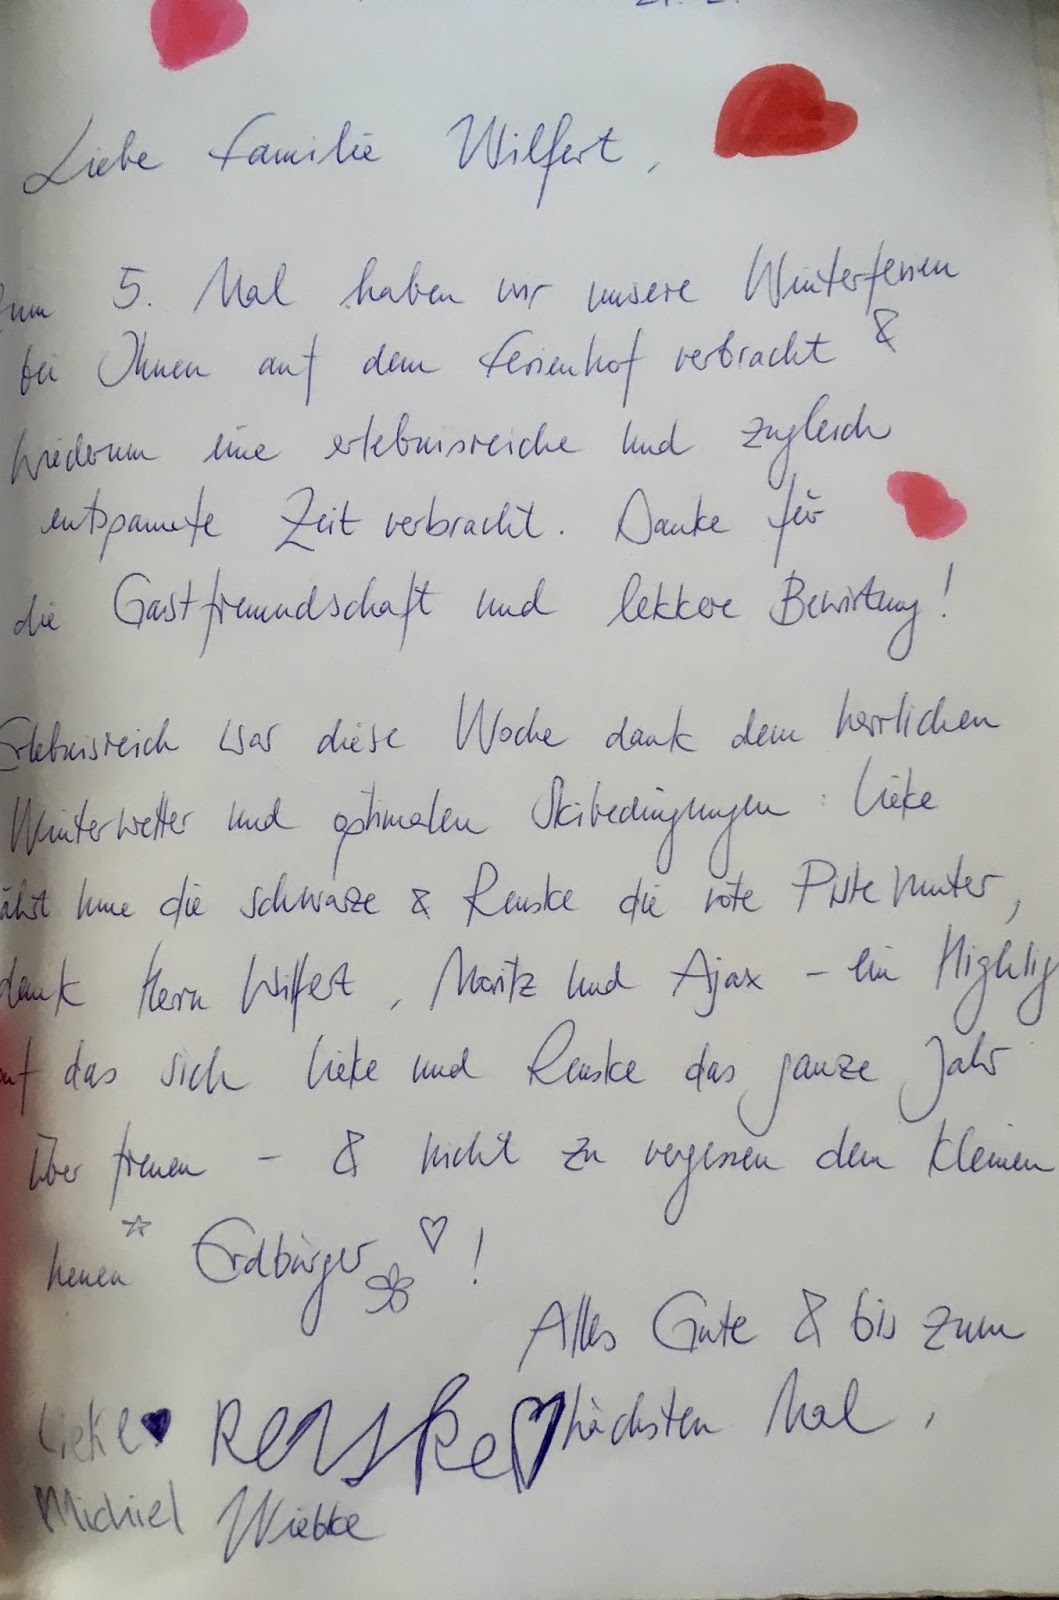 Liebe Familie Wilfert,
zum 5. Mal haben wir unsere Winterferien
bei Ihnen auf dem Ferienhof verbracht &
wiederum eine erlebnisreiche und zugleich
entspannte Zeit verbracht. Danke für
die Gastfreundschaft und lekkere Bewirtung!
Erlebnisreich war diese Woche dank dem herrlichen
Winterwetter und optimalen Skibedingungen: Lieke
fährt nun die schwarze & Renske die rote Piste runter,
dank Herrn Wilfert, Moritz und Ajax – ein Highlig
auf das sich Lieke und Renske das ganze Jahr
über freuen – & nicht zu vergessen dem kleinen
neuen Erdbürger ♡!
Alles Gute & bis zum
nächsten Mal,
Lieke♥ Renske♡
Michiel Wiebke